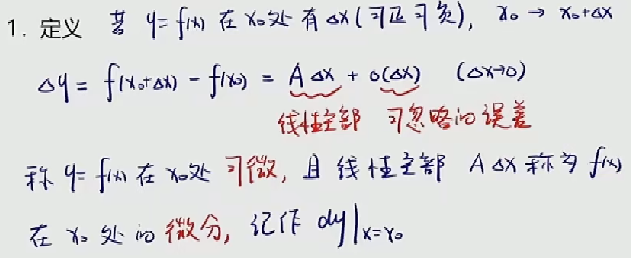 1. 定义 若 y=f(x) 在 x₀处 有 Δx(可正可负), x₀ → x₀+Δx
Δy = f(x₀+Δx) - f(x₀) = AΔx + o(Δx) (Δx→0)
线性主部 可忽略的误差
称 y=f(x) 在 x₀处 可微, 且 线性主部 AΔx 称为 f(x)
在 x₀ 处的 微分, 记作 dy|x=x₀